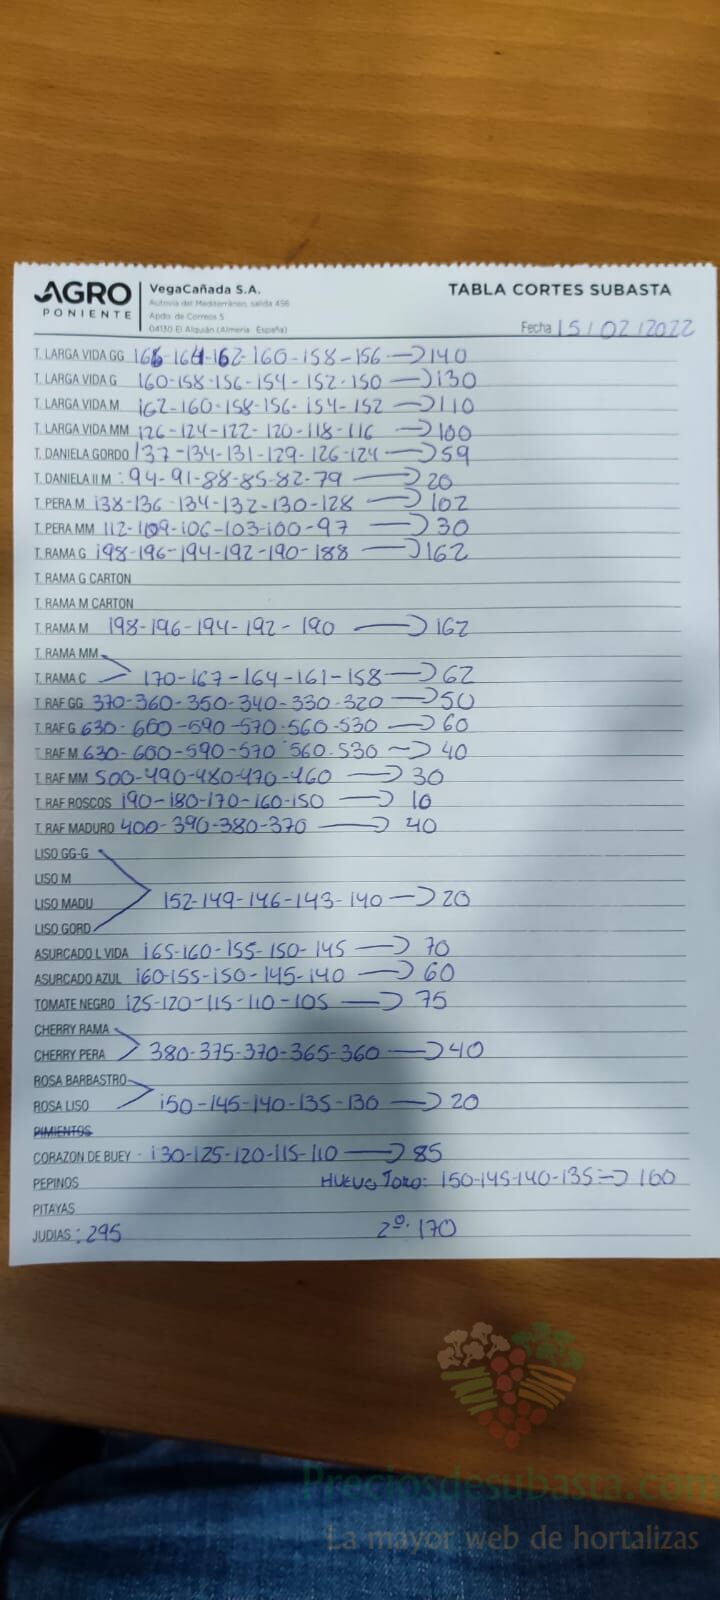 AGRO
PONIENTE
VegaCañada S.A.
Autovía del Mediterráneo, salida 456
Apdo. de Correos 5
04130 El Alquián (Almería España)
TABLA CORTES SUBASTA
Fecha 15/02/2022
T. LARGA VIDA GG 166-164-162-160-158-156 → 140
T. LARGA VIDA G 160-158-156-154-152-150 → 130
T. LARGA VIDA M 162-160-158-156-154-152 → 110
T. LARGA VIDA MM 126-124-122-120-118-116 → 100
T. DANIELA GORDO 137-134-131-129-126-124 → 59
T. DANIELA II M : 94-91-88-85-82-79 → 20
T. PERA M 138-136-134-132-130-128 → 102
T. PERA MM 112-109-106-103-100-97 → 30
T. RAMA G 198-196-194-192-190-188 → 162
T. RAMA G CARTON
T. RAMA M CARTON
T. RAMA M 198-196-194-192-190 → 162
T. RAMA MM
T. RAMA C 170-167-164-161-158 → 62
T. RAF GG 370-360-350-340-330-320 → 50
T. RAF G 630-600-590-570-560-530 → 60
T. RAF M 630-600-590-570 560-530 → 40
T. RAF MM 500-490-480-470-460 → 30
T. RAF ROSCOS 190-180-170-160-150 → 10
T. RAF MADURO 400-390-380-370 → 40
LISO GG-G
LISO M
LISO MADU 152-149-146-143-140 → 20
LISO GORD
ASURCADO L VIDA 165-160-155-150-145 → 70
ASURCADO AZUL 160-155-150-145-140 → 60
TOMATE NEGRO 125-120-115-110-105 → 75
CHERRY RAMA
CHERRY PERA 380-375-370-365-360 → 40
ROSA BARBASTRO
ROSA LISO 150-145-140-135-130 → 20
PIMIENTOS
CORAZON DE BUEY - 130-125-120-115-110 → 85
PEPINOS HUEVO TORO: 150-145-140-135 → 160
PITAYAS
JUDIAS : 295 2º. 170
Preciosdesubasta.com
La mayor web de hortalizas